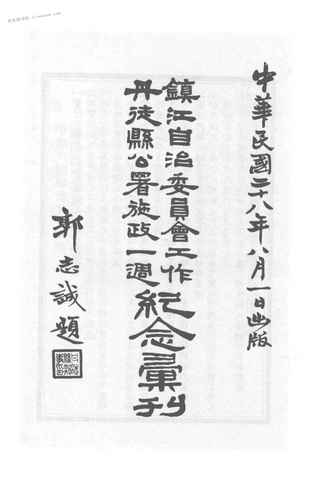 中華民國二十八年八月一日出版
鎮江自治委員會工作
丹徒縣公署施政一週
紀念彙刊
郭志誠題